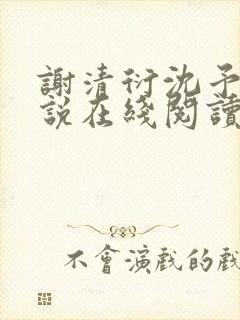 謝清衍沈予
說在綫閱讀
不會演戲的戲